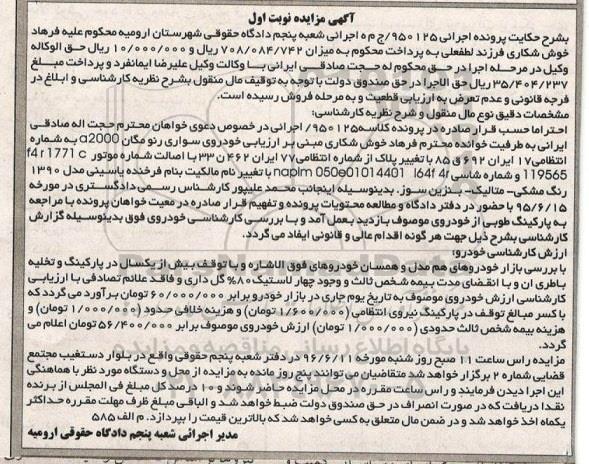 آگهی مزایده نوبت اول
بشرح حکایت پرونده اجرائی ۹۵۰۱۲۵/ج م ه اجرائی شعبه پنجم دادگاه حقوقی شهرستان ارومیه محکوم علیه فرهاد
خوش شکاری فرزند لطفعلی به پرداخت محکوم به میزان ۷۰۸/۰۸۴/۷۴۲ ریال و ۱۰/۰۰۰/۰۰۰ ریال حق الوکاله
وکیل در مرحله اجرا در حق محکوم له حجت صادقی ایرانی با وکالت وکیل علیرضا ایمانفرد و پرداخت مبلغ
۳۵/۴۰۴/۲۳۷ ریال حق الاجرا در حق صندوق دولت با توجه به توقیف مال منقول بشرح نظریه کارشناسی و ابلاغ در
فرجه قانونی و عدم تعرض به ارزیابی قطعیت و به مرحله فروش رسیده است.
مشخصات دقیق نوع مال منقول و شرح نظریه کارشناسی:
احتراما حسب قرار صادره در پرونده کلاسه ۹۵۰۱۲۵/ اجرائی در خصوص دعوی خواهان محترم حجت اله صادقی
ایرانی به طرفیت خوانده محترم فرهاد خوش شکاری مبنی بر ارزیابی خودروی سواری رنو مگان a2000 به شماره
انتظامی ۱۷ ایران ۶۹۲ ق ۸۵ با تغییر پلاک از شماره انتظامی ۷۷ ایران ۴۶۲ ن ۳۳ با اصالت شماره موتور f4r1771 c
119565 و شماره شاسی naplm 050e01014401 l64f4r با تغییر نام مالکیت بنام فرخنده یاسینی مدل ۱۳۹۰
رنگ مشکی- متالیک- بنزین سوز. بدینوسیله اینجانب محمد علیپور کارشناس رسمی دادگستری در مورخه
۹۵/۶/۱۵ با حضور در دفتر دادگاه و مطالعه محتویات پرونده و تفهیم قرار صادره در معیت خواهان پرونده با مراجعه
به پارکینگ طوبی از خودروی موصوف بازدید بعمل آمد و با بررسی کارشناسی خودروی فوق بدینوسیله گزارش
کارشناسی بشرح ذیل جهت هر گونه اقدام عالی و قانونی ایفاد می گردد.
ارزش کارشناسی خودرو:
با بررسی بازار خودروهای هم مدل و همسان خودروهای فوق الاشاره و با توقف بیش از یکسال در پارکینگ و تخلیه
باطری ان و با انقضای مدت بیمه شخص ثالث و وجود چهار لاستیک ۸۰٪ گل داری و فاقد علائم تصادفی با ارزیابی
کارشناسی ارزش خودروی موصوف به تاریخ یوم جاری در بازار خودرو برابر ۶۰/۰۰۰/۰۰۰ تومان برآورد می گردد که
با کسر مبالغ توقف در پارکینگ نیروی انتظامی (۱/۶۰۰/۰۰۰ تومان) و هزینه خلافی حدود (۱/۰۰۰/۰۰۰ تومان) و
هزینه بیمه شخص ثالث حدودی (۱/۰۰۰/۰۰۰ تومان) ارزش خودروی موصوف برابر ۵۶/۴۰۰/۰۰۰ تومان اعلام می
گردد.
مزایده راس ساعت ۱۱ صبح روز شنبه مورخه ۹۶/۶/۱۱ در دفتر شعبه پنجم حقوقی واقع در بلوار دستغیب مجتمع
قضایی شماره ۲ برگزار خواهد شد متقاضیان می توانند پنج روز مانده به مزایده از محل و دستگاه مورد نظر با هماهنگی
این اجرا دیدن فرمایند و راس ساعت مقرره در محل مزایده حاضر شوند و ۱۰ درصد کل مبلغ فی المجلس از برنده
نقدا دریافت که در صورت انصراف در حق صندوق دولت ضبط خواهد شد و الباقی مبلغ ظرف مهلت مقرره حداکثر
یکماه اخذ خواهد شد و در ضمن مال متعلق به کسی خواهد شد که بالاترین قیمت را بپردازد. م الف ۵۸۵
مدیر اجرائی شعبه پنجم دادگاه حقوقی ارومیه